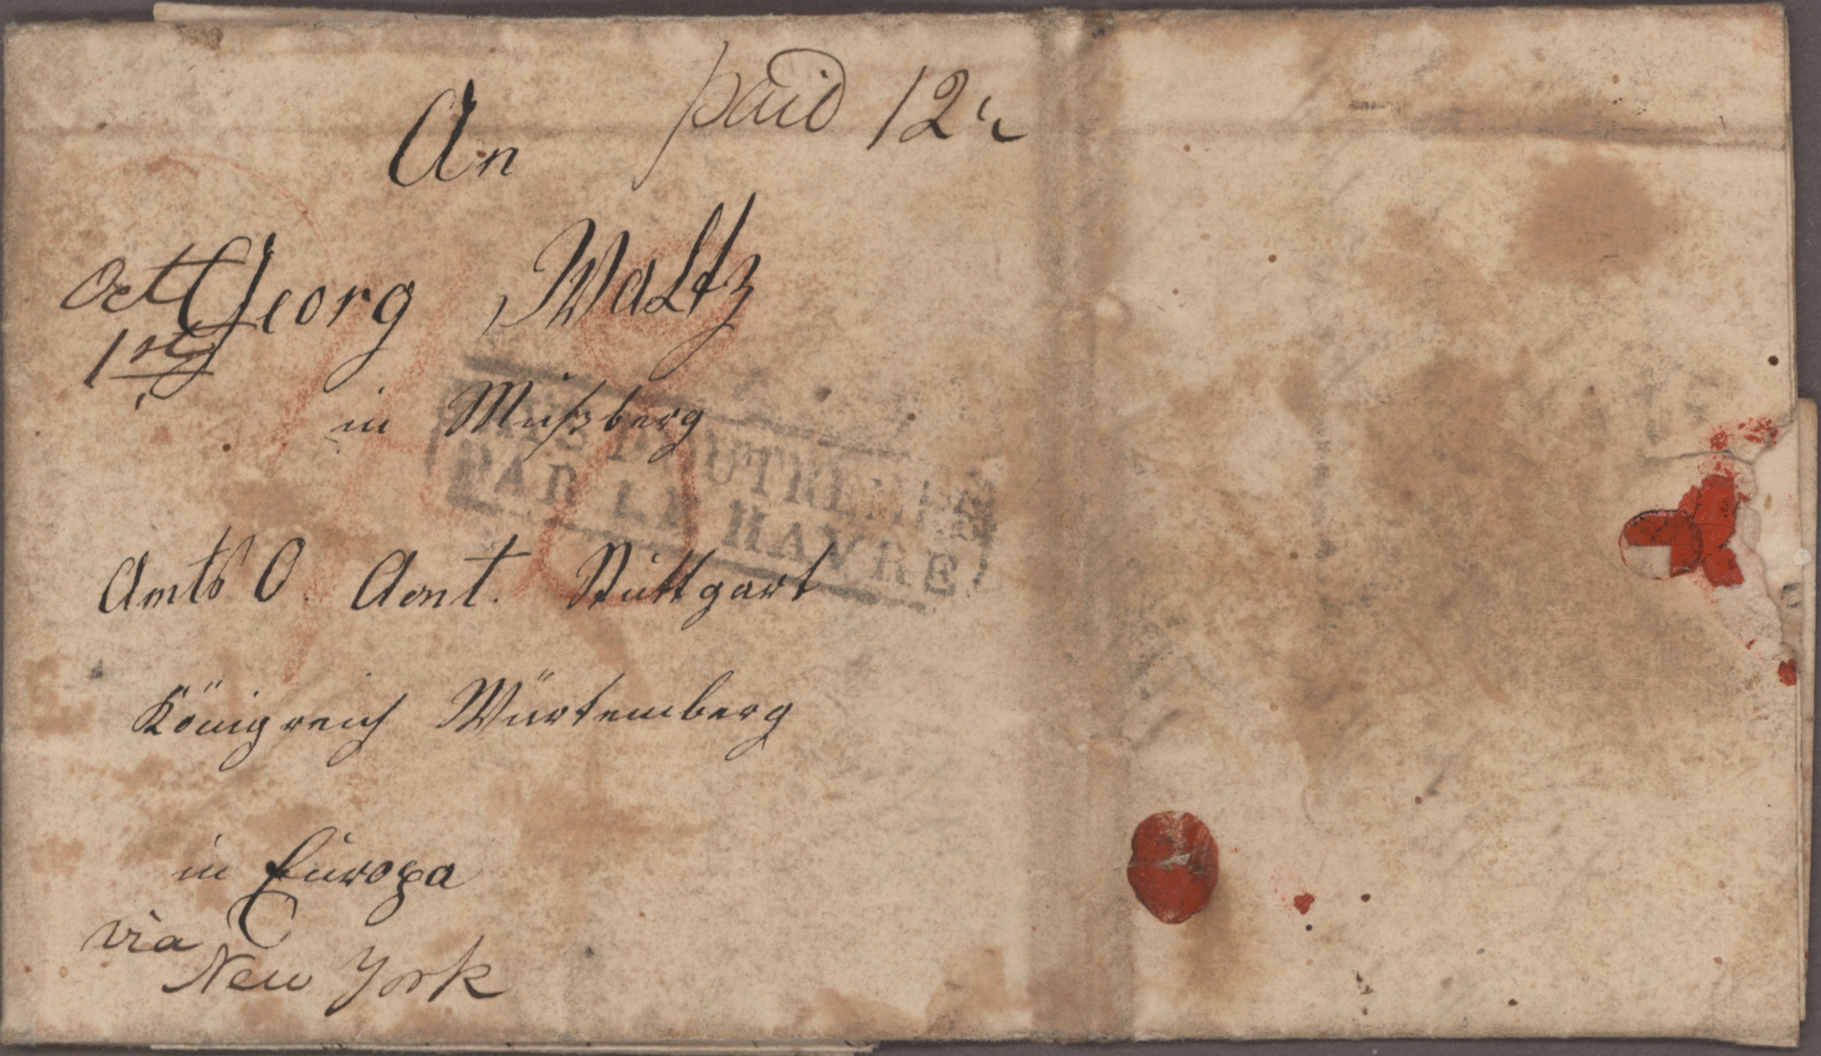 paid 12½
An
Oct Georg Waltz
1st
in Mußberg
PAYS D'OUTREMER
PAR LE HAVRE
Amts O. Amt. Stuttgart
Königreich Würtemberg
in Europa
via
New York